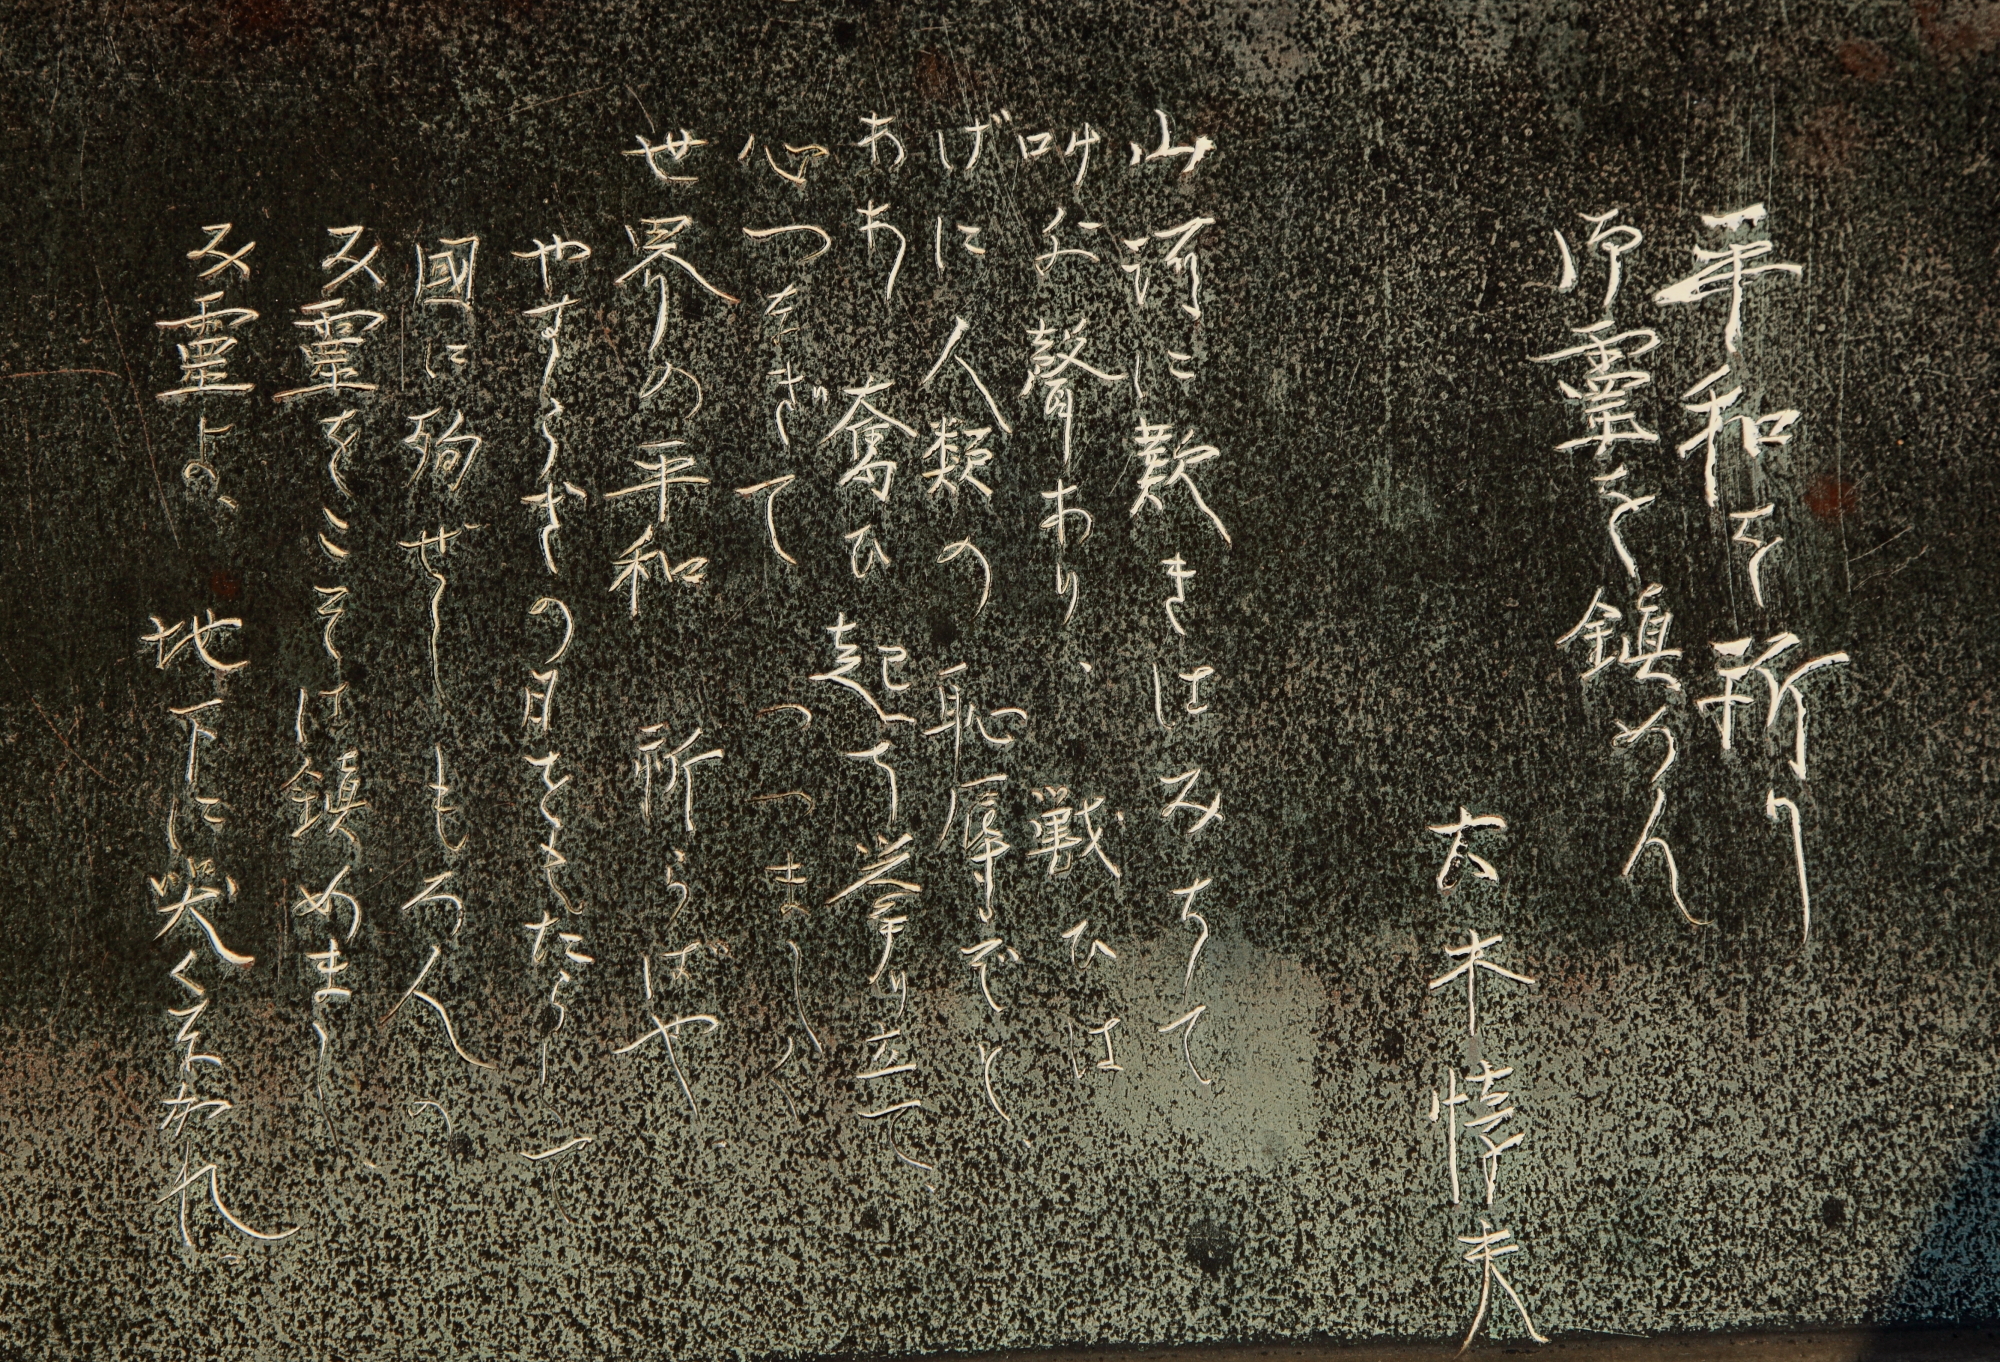 平和を祈り
御霊を鎮めん
大木惇夫
山河に歎きはみちて
叫ぶ聲あり、戦ひは
げに人類の恥辱でと、
ああ奮ひ起ち挙り立て、
心つなぎてつつましく
世界の平和祈らばや、
やすらぎの日をもたらして
國に殉ぜしもろ人の
み霊をこそは鎮めまし、
み霊よ、地下に哭くなかれ。